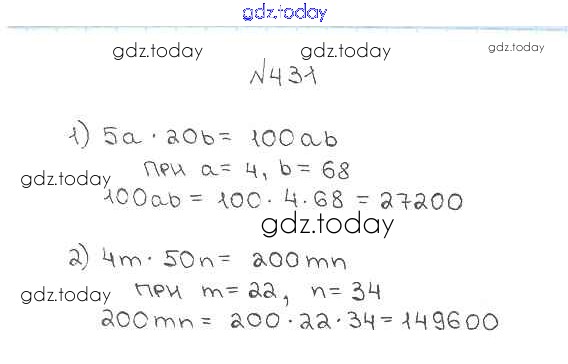 gdz.today
gdz.today gdz.today gdz.today
№431
1) 5a · 20b = 100ab
при a = 4, b = 68
gdz.today
100ab = 100 · 4 · 68 = 27200
gdz.today
2) 4m · 50n = 200mn
gdz.today
при m = 22, n = 34
200mn = 200 · 22 · 34 = 149600